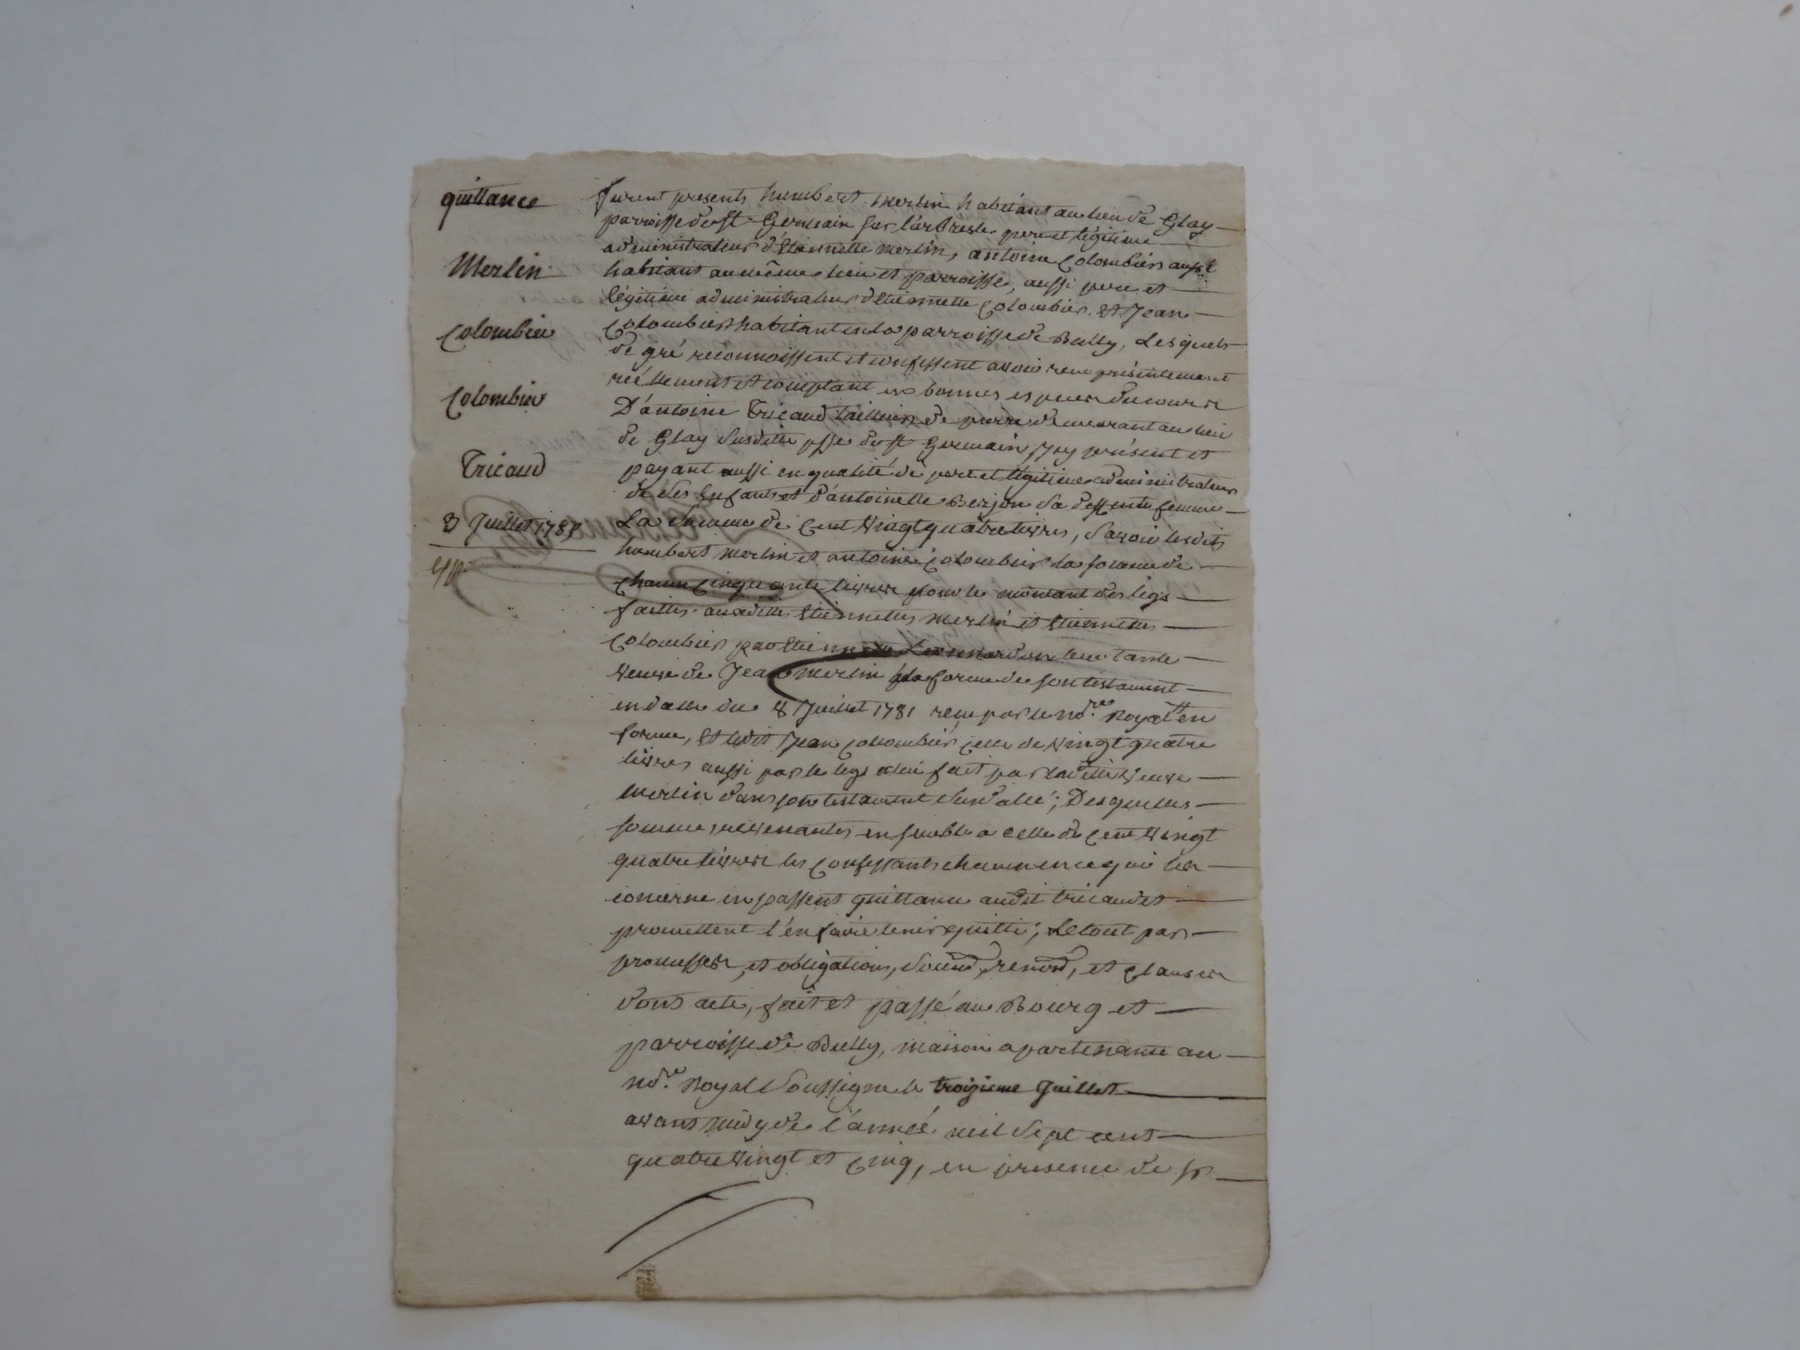 quittance
Merlin
Colombier
Colombier
Tricaud
3 Juillet 1785
furent presents humbert Merlin habitant au lieu de Glay
parroisse de st Germain sur l'arbresle pere et légitime
administrateur d'Étiennette Merlin, antoine Colombier aussi
habitant au même lieu et parroisse, aussi pere et
légitime administrateur d'Etiennette Colombier. Et Jean
Colombier habitant en la parroisse de Bully, Lesquels
de gré reconnoissent et confessent avoir reçu présentement
réellement et comptant en bonnes especes du cours
D'antoine Tricaud tailleur de pierre demeurant au lieu
de Glay susditte psse de st Germain, icy présent et
payant aussi en qualité de pere et légitime administrateur
de ses Enfants et d'antoinette Berjon sa deffunte femme
La somme de Cent Vingt quatre livres, savoir lesdits
humbert Merlin et antoine Colombier la somme de
Chacun Cinquante livres pour le montant des legs
faitts auxdittes Etiennettes Merlin et Etiennettes
Colombier par Etiennette leur tante
veuve de Jean Merlin forme de son testament
en datte du 8 Juillet 1781 reçu par le nore. Royal en
forme, Et ledit Jean Collombier celle de vingt quatre
livres aussi par le legs a lui fait par laditte veuve
Merlin dans son testament susdatté; Desquelles
sommes revenantes ensemble a celle de Cent Vingt
quatre livres les Confessants chacun en ce qui les
concerne en passent quittance audit tricaud et
promettent l'en faire tenir quitte; Le tout par
promesses, et obligations, soumd, renond, et Clauses
dont acte, fait et passé au Bourg et
parroisse de Bully, maison apartenante au
nore. Royal soussigne le troizieme Juillet
avant midy de l'année mil sept cent
quatre Vingt et Cinq, en presence de sr